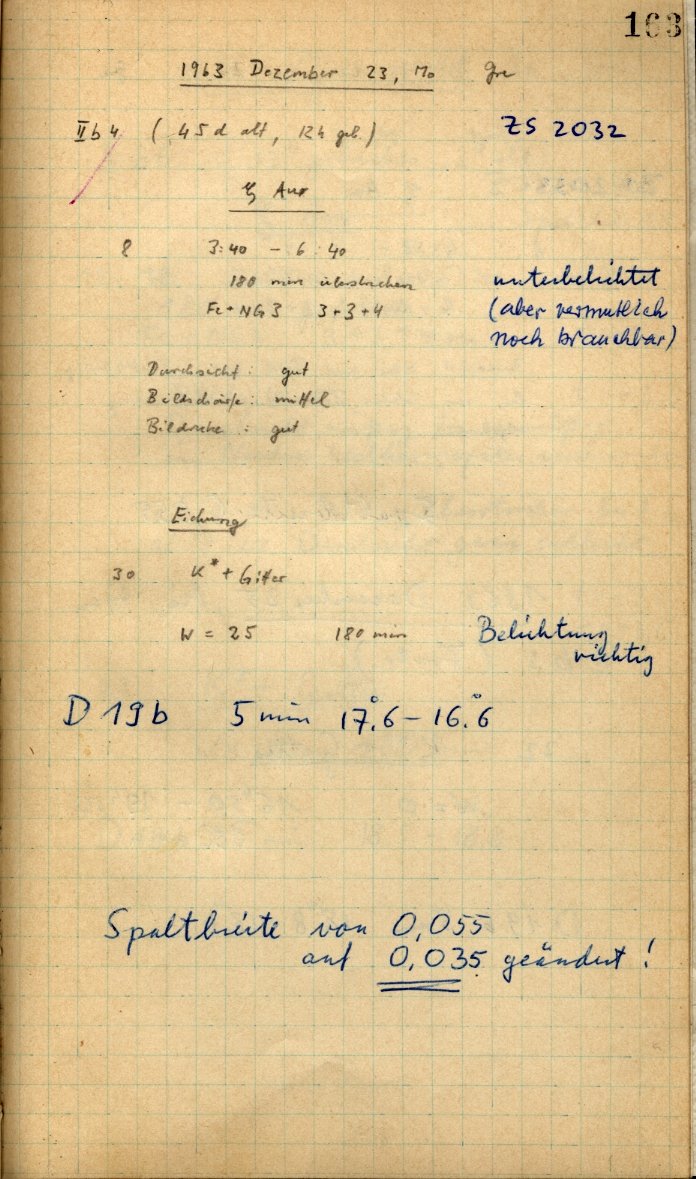 163
1963 Dezember 23, Mo Gre
IIb4 (45d alt, 12h geb.) ZS 2032
ζ Aur
8 3:40 – 6:40
180 min überstrichen unterbelichtet
Fe + NG3 3+3+4 (aber vermutlich
noch brauchbar)
Durchsicht: gut
Bildschärfe: mittel
Bildruhe: gut
Eichung
30 K* + Gitter
W = 25 180 min Belichtung
richtig
D 19b 5 min 17°.6 – 16°.6
Spaltbreite von 0,055
auf 0,035 geändert!